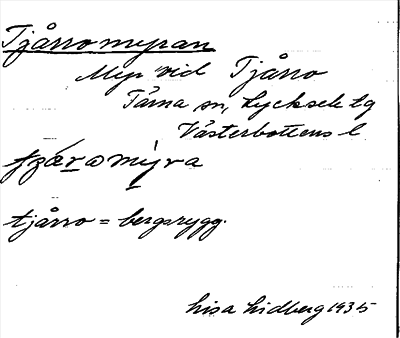 Tjårromyran
Myr vid Tjårro
Tärna sn, Lycksele lg
Västerbottens l.
tjårro = bergsrygg.
Lisa Lidberg 1935